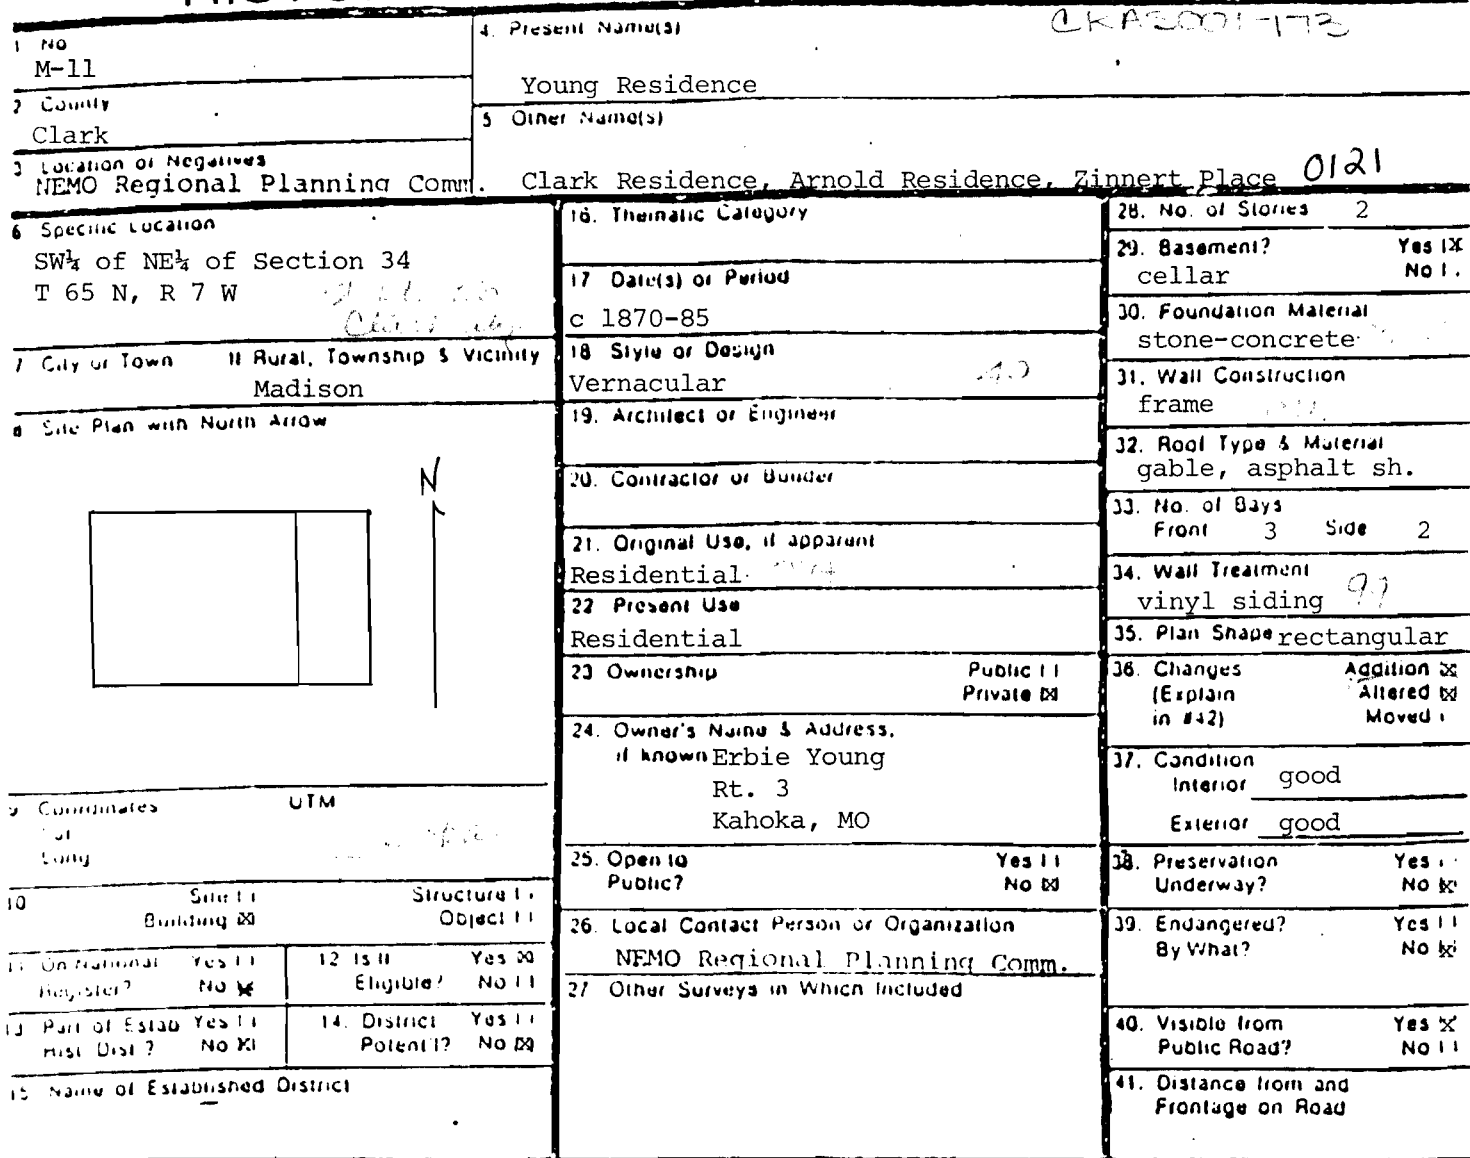 1 No
M-11
2 County
Clark
3 Location of Negatives
NEMO Regional Planning Comm.
4. Present Name(s)
CKAS001-173
Young Residence
5 Other Name(s)
Clark Residence, Arnold Residence, Zinnert Place 0121
6 Specific Location
SW¼ of NE¼ of Section 34
T 65 N, R 7 W
7 City or Town If Rural, Township & Vicinity
Madison
8 Site Plan with North Arrow
N
9 Coordinates UTM
Lat
Long
10 Site Structure
Building ☒ Object
11 On National Register? Yes No ☒
12 Is It Eligible? Yes ☒ No
13 Part of Estab Hist Dist? Yes No ☒
14. District Potent'l? Yes No ☒
15 Name of Established District
16. Thematic Category
17 Date(s) or Period
c 1870-85
18 Style or Design
Vernacular
19. Architect or Engineer
20. Contractor or Builder
21. Original Use, if apparent
Residential
22 Present Use
Residential
23 Ownership Public
Private ☒
24. Owner's Name & Address,
if known Erbie Young
Rt. 3
Kahoka, MO
25. Open to Yes
Public? No ☒
26. Local Contact Person or Organization
NEMO Regional Planning Comm.
27 Other Surveys in Which Included
28. No. of Stories 2
29. Basement? Yes ☒
cellar No
30. Foundation Material
stone-concrete
31. Wall Construction
frame
32. Roof Type & Material
gable, asphalt sh.
33. No. of Bays
Front 3 Side 2
34. Wall Treatment
vinyl siding
35. Plan Shape rectangular
36. Changes Addition ☒
(Explain Altered ☒
in #42) Moved
37. Condition
Interior good
Exterior good
38. Preservation Yes
Underway? No ☒
39. Endangered? Yes
By What? No ☒
40. Visible from Yes ☒
Public Road? No
41. Distance from and
Frontage on Road